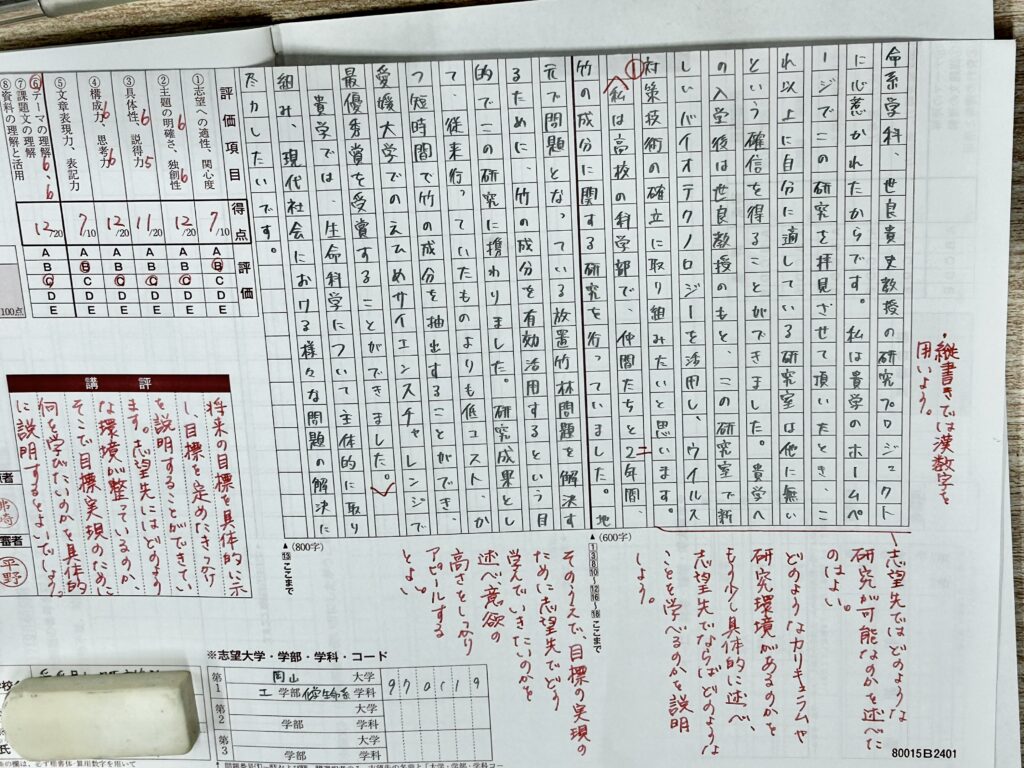 命系学科、世良貴史教授の研究プロジェクト
に心惹かれたからです。私は貴学のホームペ
ージでこの研究を拝見させて頂いたとき、こ
れ以上に自分に適している研究室は他に無い
という確信を得ることができました。貴学へ
の入学後は世良教授のもと、この研究室で新
しいバイオテクノロジーを活用し、ウイルス
対策技術の確立に取り組みたいと思います。
①私は高校の科学部で、仲間たちと2年間、
二
竹の成分に関する研究を行っていました。地
元で問題となっている放置竹林問題を解決す
るために、竹の成分を有効活用するという目
的でこの研究に携わりました。研究成果とし
て、従来行っていたものよりも低コスト、か
つ短時間で竹の成分を抽出することができ、
愛媛大学でのえひめサイエンスチャレンジで
最優秀賞を受賞することができました。
貴学では、生命科学について主体的に取り
組み、現代社会における様々な問題の解決に
尽力したいです。
・縦書きでは漢数字を
用いよう。
志望先ではどのような
研究が可能なのかを述べた
のはよい。
どのようなカリキュラムや
研究環境があるのかを
もう少し具体的に述べ、
志望先でならばどのような
ことを学べるのかを説明
しよう。
そのうえで、目標の実現の
ために志望先でどう
学んでいきたいのかを
述べ、意欲の
高さをしっかり
アピールする
とよい。
▲(600字)
1 3 8 10～12 16～18 ここまで
▲(800字)
15 ここまで
評価項目
得点
評価
①志望への適性、関心度
7/10
A B C D E
②主題の明確さ、独創性
6 6
12/20
A B C D E
③具体性、説得力
6 5
11/20
A B C D E
④構成力、思考力
6 6
12/20
A B C D E
⑤文章表現力、表記力
7/10
A B C D E
⑥テーマの理解
6、6
⑦課題文の理解
⑧資料の理解と活用
12/20
A B C D E
100点
講評
将来の目標を具体的に示
し、目標を定めたきっかけ
を説明することができてい
ます。志望先にはどのよう
な環境が整っているのか、
そこで目標実現のために
何を学びたいのかを具体的
に説明するとよいでしょう。
平野
※志望大学・学部・学科・コード
第1 岡山 大学
工 学部 化学生命系 学科
970119
第2 大学
学部 学科
第3 大学
学部 学科
80015B2401